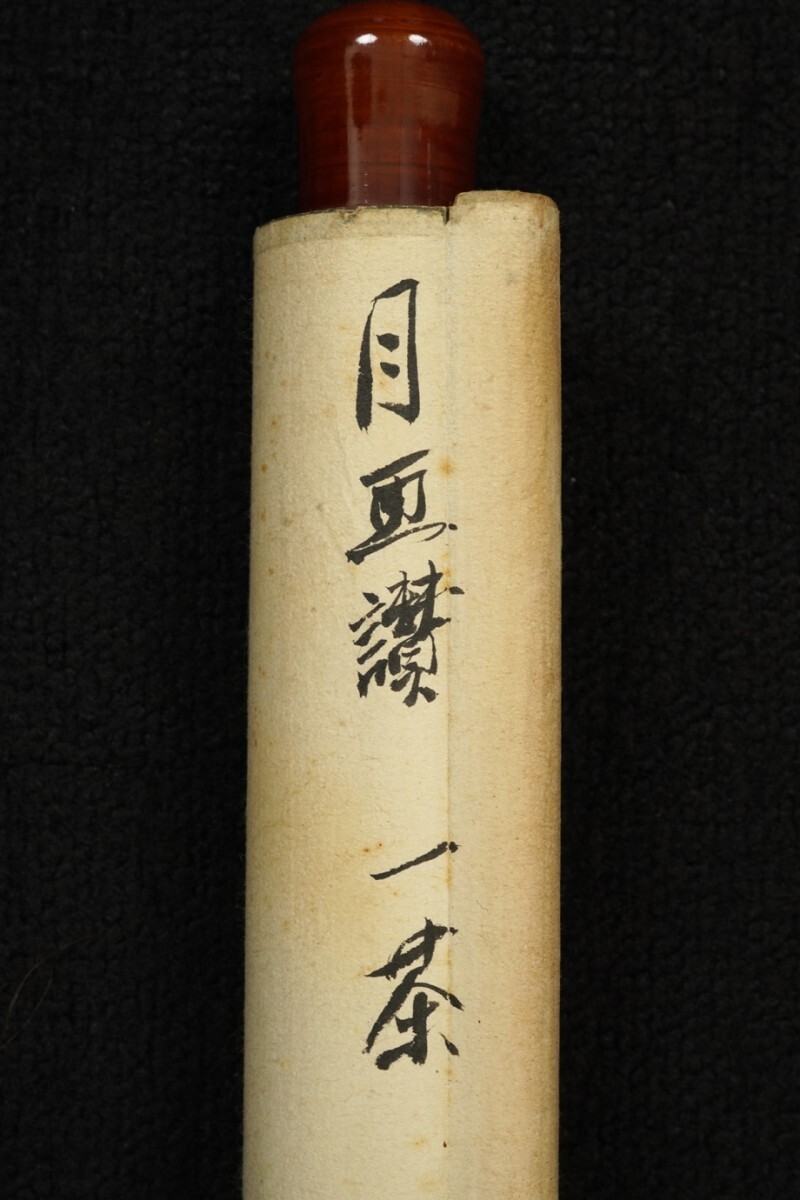 月画讃 一茶